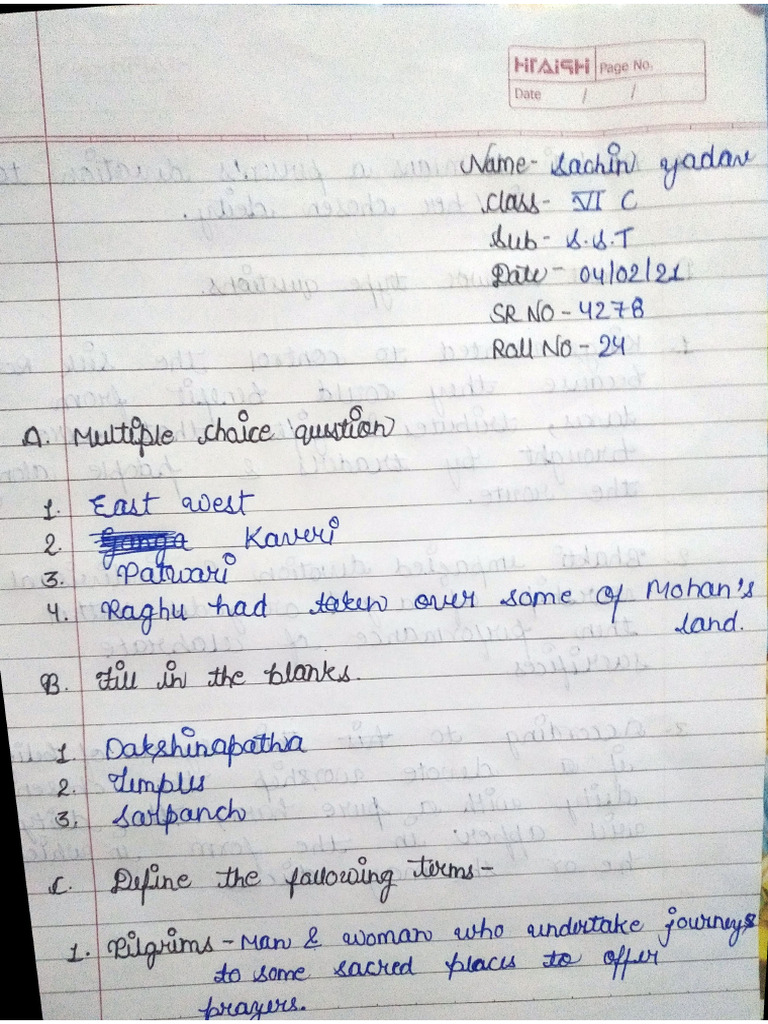 Page No.
Date / /
Name- Sachin Yadav
Class- VI C
Sub- S.S.T
Date- 04/02/21
SR NO-4278
Roll No-24
A. Multiple choice question
1. East west
2. Ganga Kaveri
3. Patwari
4. Raghu had taken over some of Mohan's
land.
B. Fill in the blanks.
1. Dakshinapatha
2. Temples
3. Sarpanch
C. Define the following terms-
1. Pilgrims - Man & woman who undertake journeys
to some sacred places to offer
prayers.